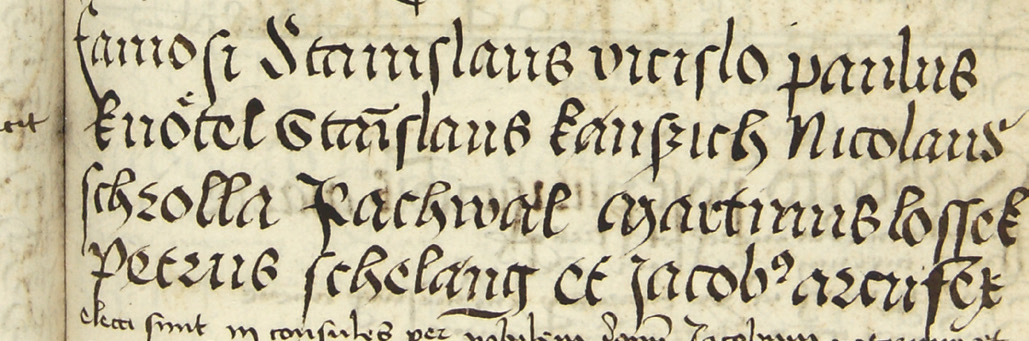 famosi Stanislaus vicislo paulus
knötel Stañslaus kanßich Nicolaus
schrolla Pachwal Martinus lossek
Petrus schelang et Jacobꝰ arcufex
electi sunt in consules per nobilem Jacobum